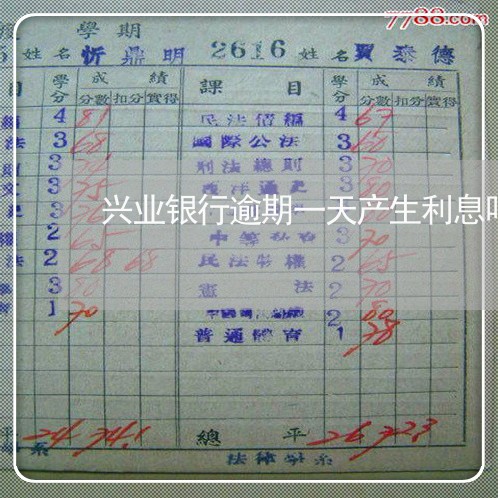 7788.com
學期
姓名 忻鼎明 2616 姓名 賈泰德
目 學分 成績 課目 學分 成績
分數 扣分 實得 分數 扣分 實得
4 81 民法債編 4 67
法 3 68 國際公法 3 60
3 刑法總則 3 70
3 75 西洋通史 3 80
兴业银行逾期一天产生利息吗
2 65 3 70
法 2 68 68 民法物權 2 65
3 80 憲法 2 70
1 70 2 80
普通體育 1 78
平 24 74.1 總平 26 72.3
系 法律學系